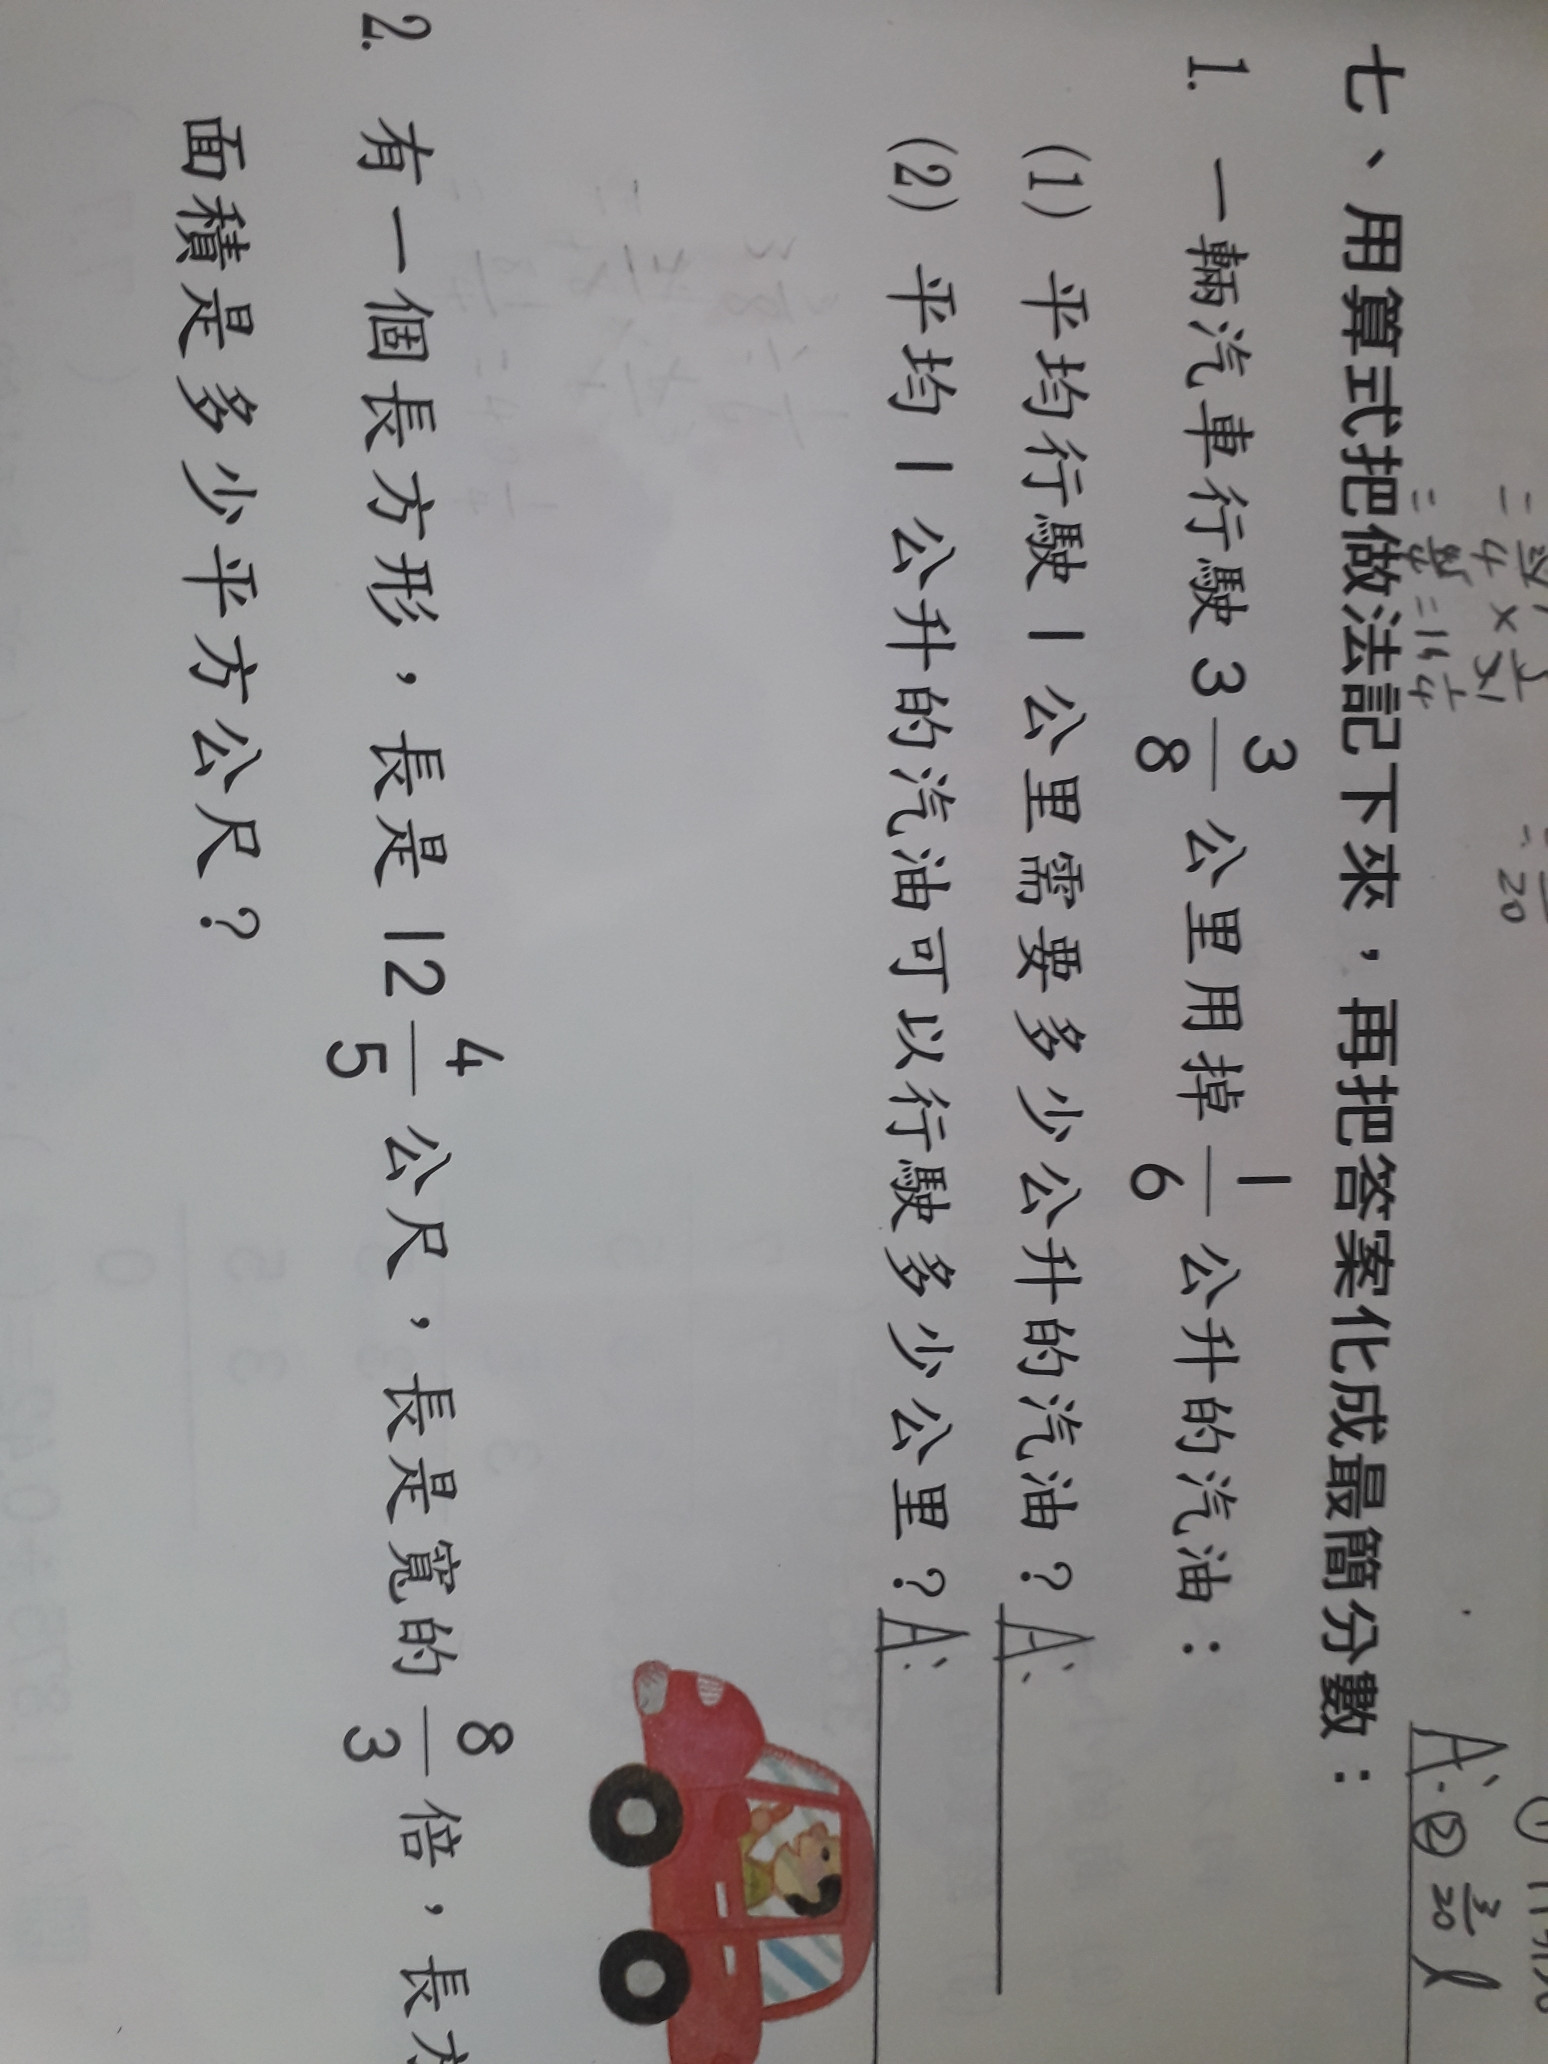 = 4 × 
= 16 1/4
20
A: ② 3/20 l
七、用算式把做法記下來，再把答案化成最簡分數：
1. 一輛汽車行駛 3 3/8 公里用掉 1/6 公升的汽油：
(1) 平均行駛 1 公里需要多少公升的汽油？A:
(2) 平均 1 公升的汽油可以行駛多少公里？A:
2. 有一個長方形，長是 12 4/5 公尺，長是寬的 8/3 倍，長方
面積是多少平方公尺？